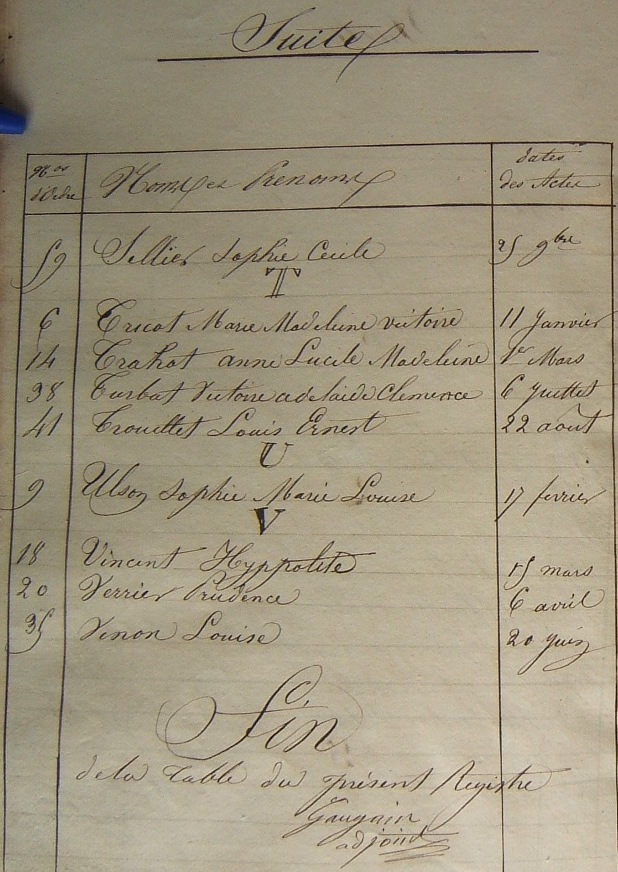 Suite
Nos d'Ordre Noms et Prenoms dates des Actes
59 Sellier Sophie Cecile 25 9bre
T
6 Tricot Marie Madeleine victoire 11 Janvier
14 Trahot anne Lucile Madeleine 1er Mars
38 Turbat Victoire adelaide Clemence 6 Juillet
41 Trouillet Louis Ernest 22 août
U
9 Ulson Sophie Marie Louise 17 fevrier
V
18 Vincent Hyppolite 15 mars
20 Verrier Prudence 6 avril
35 Venon Louise 20 juin
Fin
de la Table du présent Registre
Gaugain
adjoint